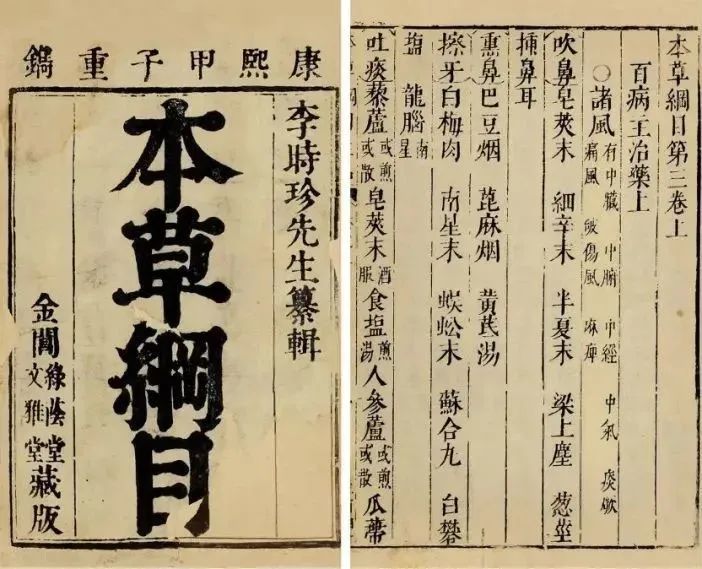 康熙甲子重鐫
李時珍先生纂輯
本草綱目
金閶綠蔭堂文雅堂藏版
本草綱目第三卷上
百病主治藥上
○諸風 有中臟 中腑 中經 中氣 痰厥
痛風 破傷風 麻痺
吹鼻皂莢末 細辛末 半夏末 梁上塵 葱莖
插鼻耳
熏鼻巴豆烟 蓖麻烟 黄芪湯
擦牙白梅肉 南星末 蜈蚣末 蘇合丸 白礬
鹽 龍腦南星
吐痰藜蘆或煎或散 皂莢末酒服 食塩煎湯 人參蘆或煎或散 瓜蔕